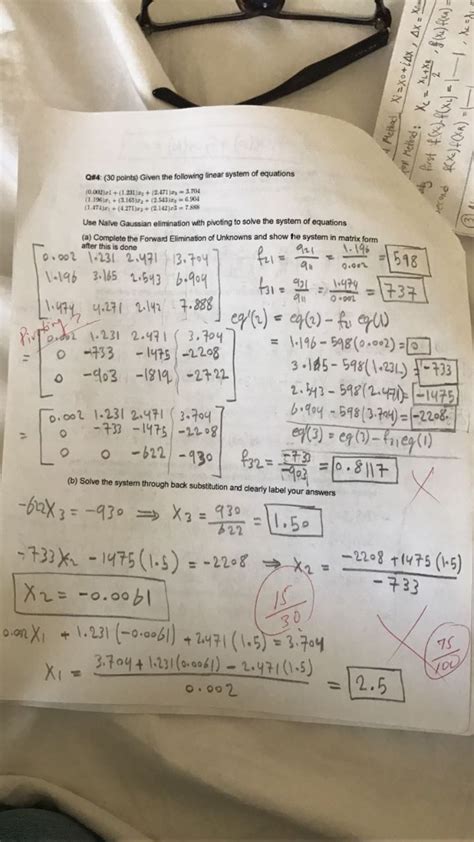 Method Xi = X0 + i∆x, ∆x =
Method: Xc =
Q#4: (30 points) Given the following linear system of equations
(0.002)x1 + (1.231)x2 + (2.471)x3 = 3.704
(1.196)x1 + (3.165)x2 + (2.543)x3 = 6.904
(1.474)x1 + (4.271)x2 + (2.142)x3 = 7.888
Use Naïve Gaussian elimination with pivoting to solve the system of equations
(a) Complete the Forward Elimination of Unknowns and show the system in matrix form
after this is done
0.002 1.231 2.471 | 3.704
1.196 3.165 2.543 | 6.904
1.474 4.271 2.142 | 7.888
f21 = a21/a11 = 1.196/0.002 = 598
f31 = a31/a11 = 1.474/0.002 = 737
Pivoting?
eq'(2) = eq(2) - f21 eq(1)
= 0.002 1.231 2.471 | 3.704
0 -733 -1475 | -2208
0 -903 -1819 | -2722
= 1.196 - 598(0.002) = 0
3.165 - 598(1.231) = -733
2.543 - 598(2.471) = -1475
6.904 - 598(3.704) = -2208
eq(3) = eq(3) - f31 eq(1)
= 0.002 1.231 2.471 | 3.704
0 -733 -1475 | -2208
0 0 -622 | -930
f32 = -733/-903 = 0.8117
(b) Solve the system through back substitution and clearly label your answers
-622X3 = -930 ⟹ X3 = 930/622 = 1.50
-733X2 - 1475(1.5) = -2208 ⟹ X2 = -2208 + 1475(1.5)/-733
X2 = -0.0061
15/30
0.002X1 + 1.231(-0.0061) + 2.471(1.5) = 3.704
75/100
X1 = 3.704 + 1.231(0.0061) - 2.471(1.5)/0.002 = 2.5